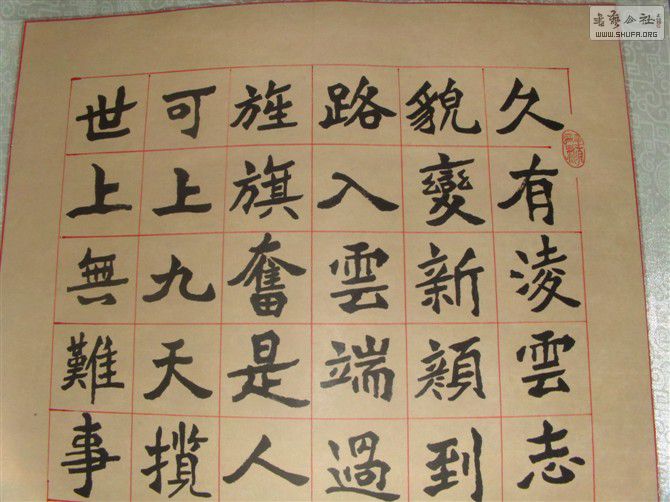 久有淩雲志
貌變新顏到
路入雲端過
旌旗奮是人
可上九天攬
世上無難事
WWW.SHUFA.ORG